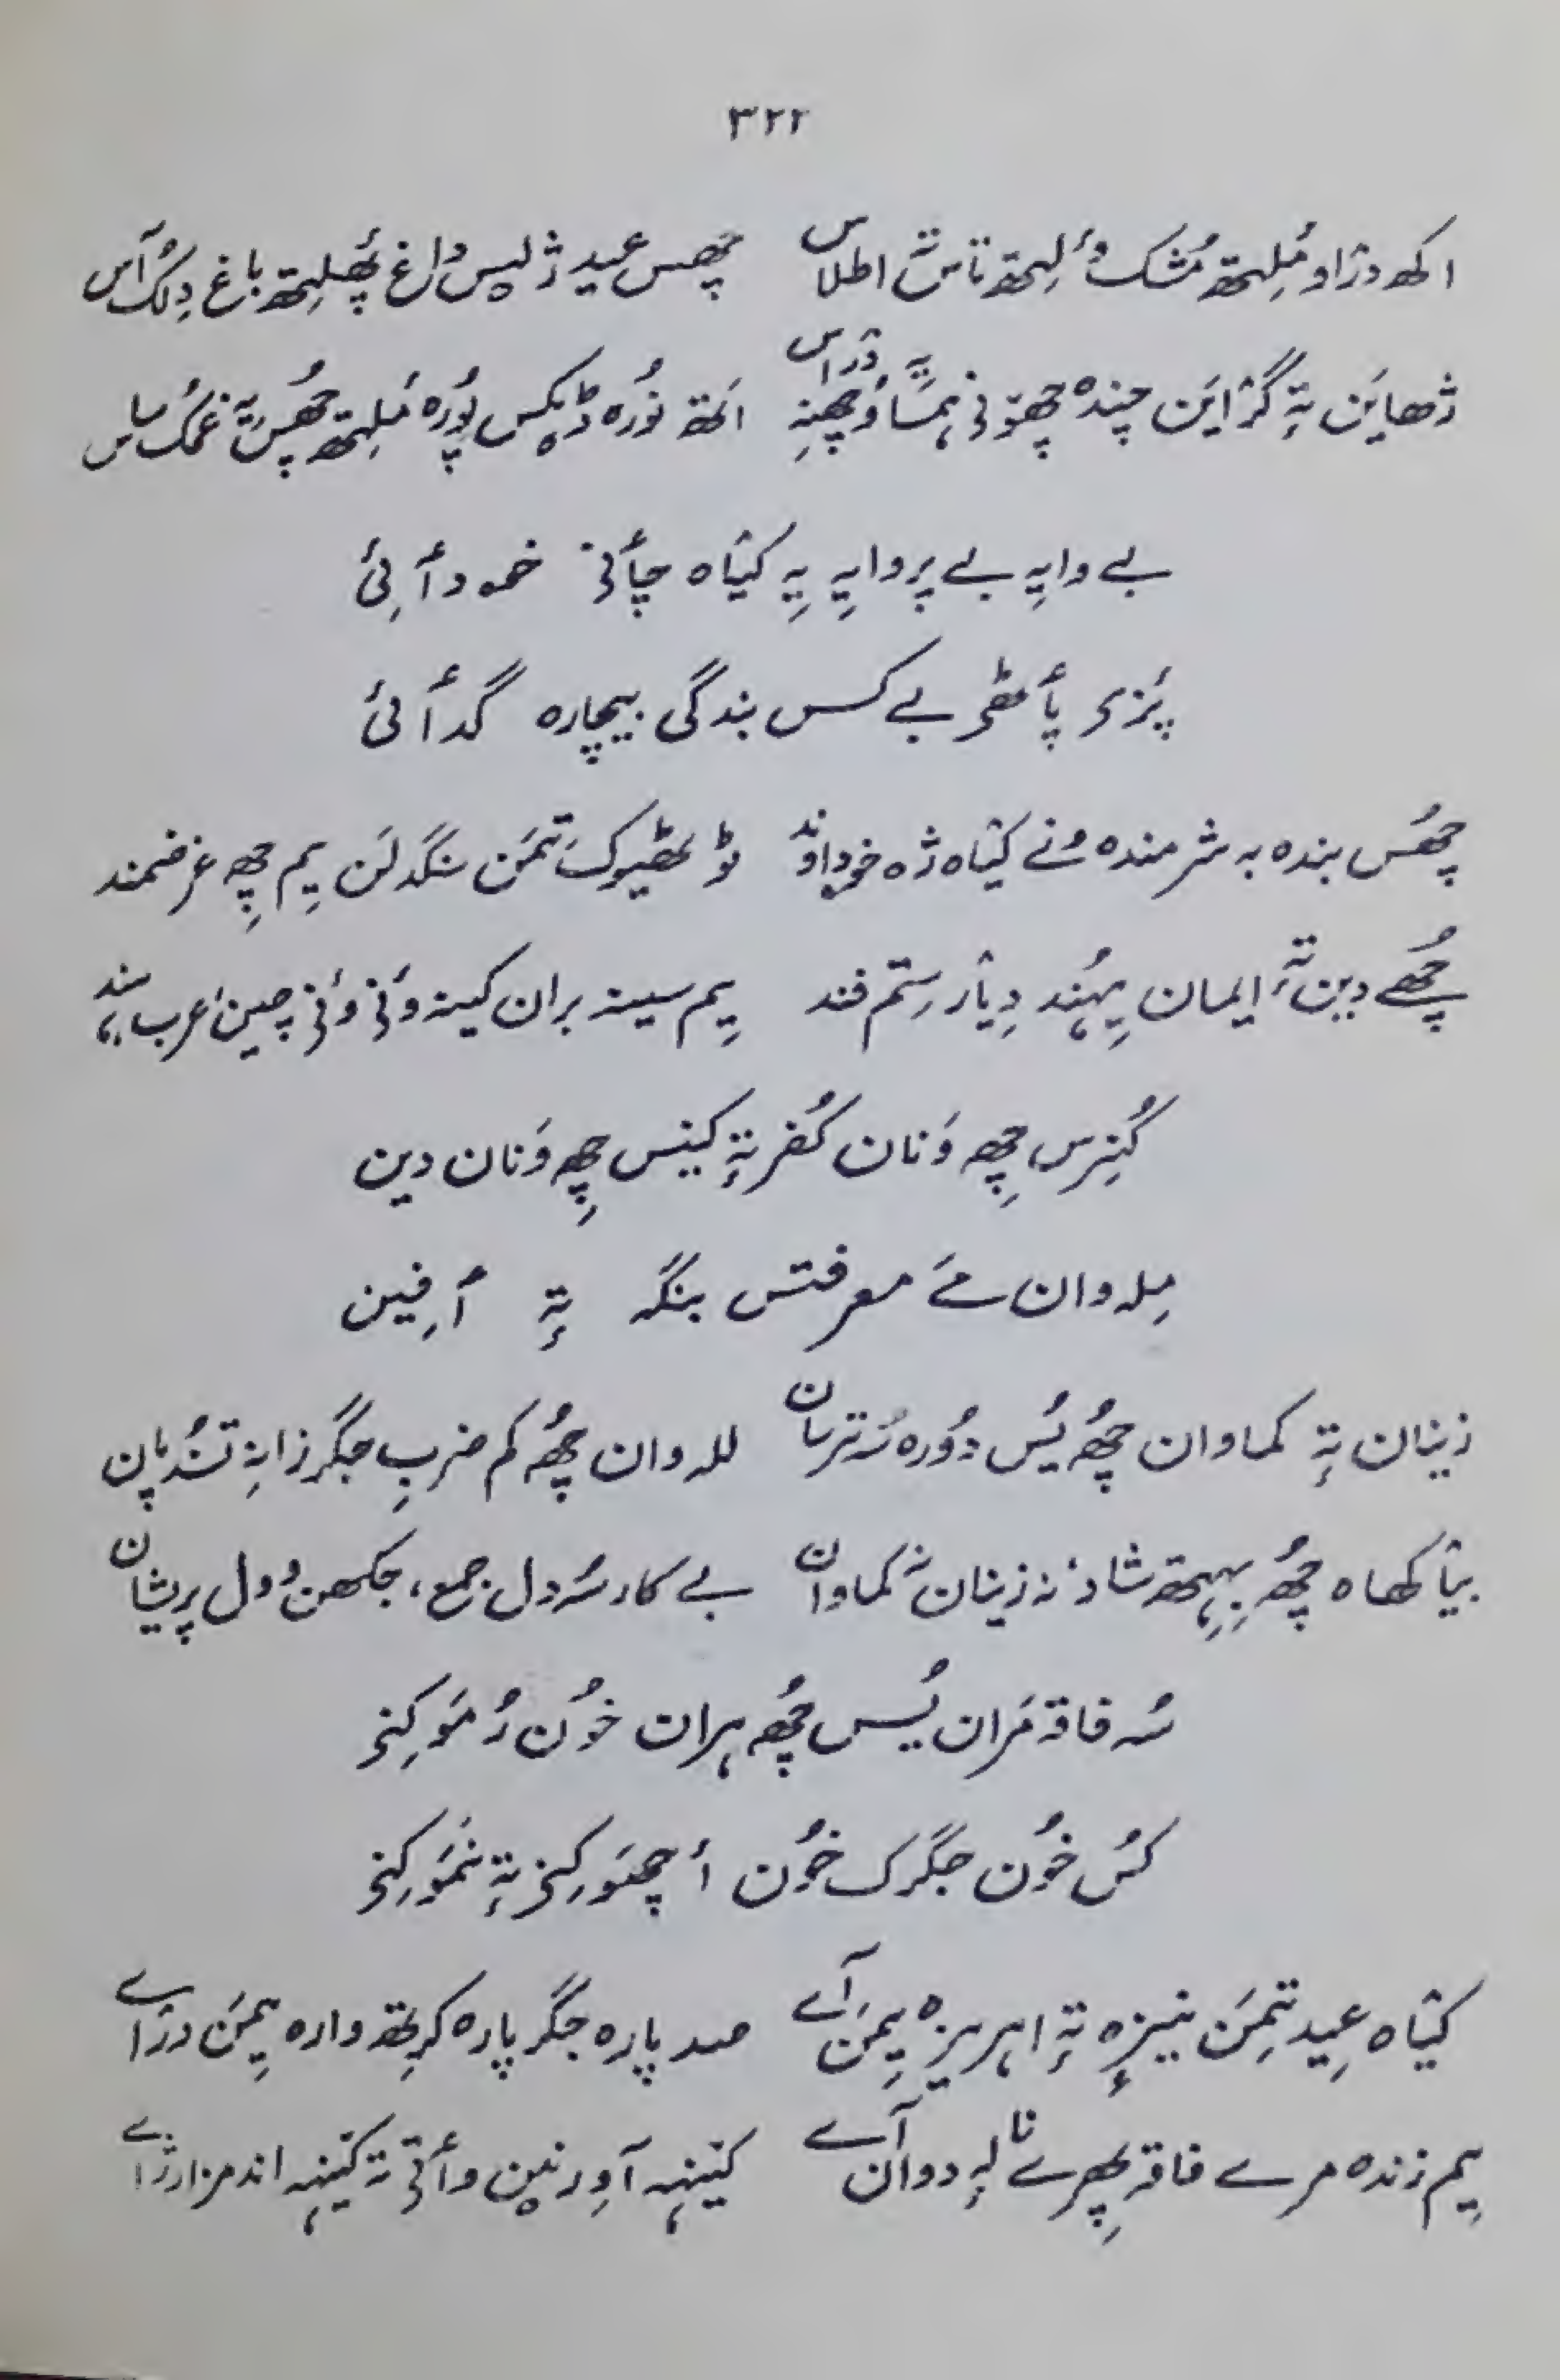 ۳۲۲
اکھ دژاو مُلِتھ مُشک وٕلِتھ تاش اطلاس چھس عید ژلیس داغ پھٔلِتھ باغ دِلُک آس
ژھاین تہٕ گژاین چندہ چھۆنی ہمسا وُچھنہِ دراس اتھ نُورہ ڈیکس پُورہ مٔلِتھ چھُس یہٕ غمُک ساس
بے وایہِ بے پروایہِ یہِ کیٛاہ چأنی خۄدأیی
پَزی پأٹھی بے کس بندگی بیچارہ گدأیی
چھُس بندہ بہ شرمندہ ونے کیٛاہ ژہ خوداوند ٹوٹھیوکھ تِمَن سنگدلن یِم چھِ غرضمند
چھُے دین تہٕ ایمان یِہُند دِیٛار رستم فند یِم سینہ بران کینہ وٕنی وٕنی چین عرب ہند
کُنِرس چھِ وَنان کُفر تہٕ کینس چھِ وَنان دین
مِلہ وان مےٚ معرفتس بنگہ تہٕ أفِین
زینان تہٕ کماوان چھُ یُس دُورہ نہ تریان للہ وان چھُ کم ضربِ جگر زانہِ تسُند پان
بیٛاکھاہ چھُ بِہِتھ شاد نہ زینان نہٕ کماوان بے کار سُہ دل جمع، جکھن وول پریشان
سُہ فاقہ مَران یُس چھُ ہران خوٗن رُمَو کِنی
کُس خوٗن جگرک خوٗن أچھَو کِنی تہٕ نمَو کِنی
کیٛاہ عید تِمَن نیزہ تہٕ اہریزہ یِمَن آے صد پارہ جگر پارہ کرِتھ وارہ یِمَن دراے
یِم زندہ مرے فاقہٕ پھرے نالہٕ دوان آے کینہہ آوِرنین وأتی تہٕ کینہہ اند مزار ژاے